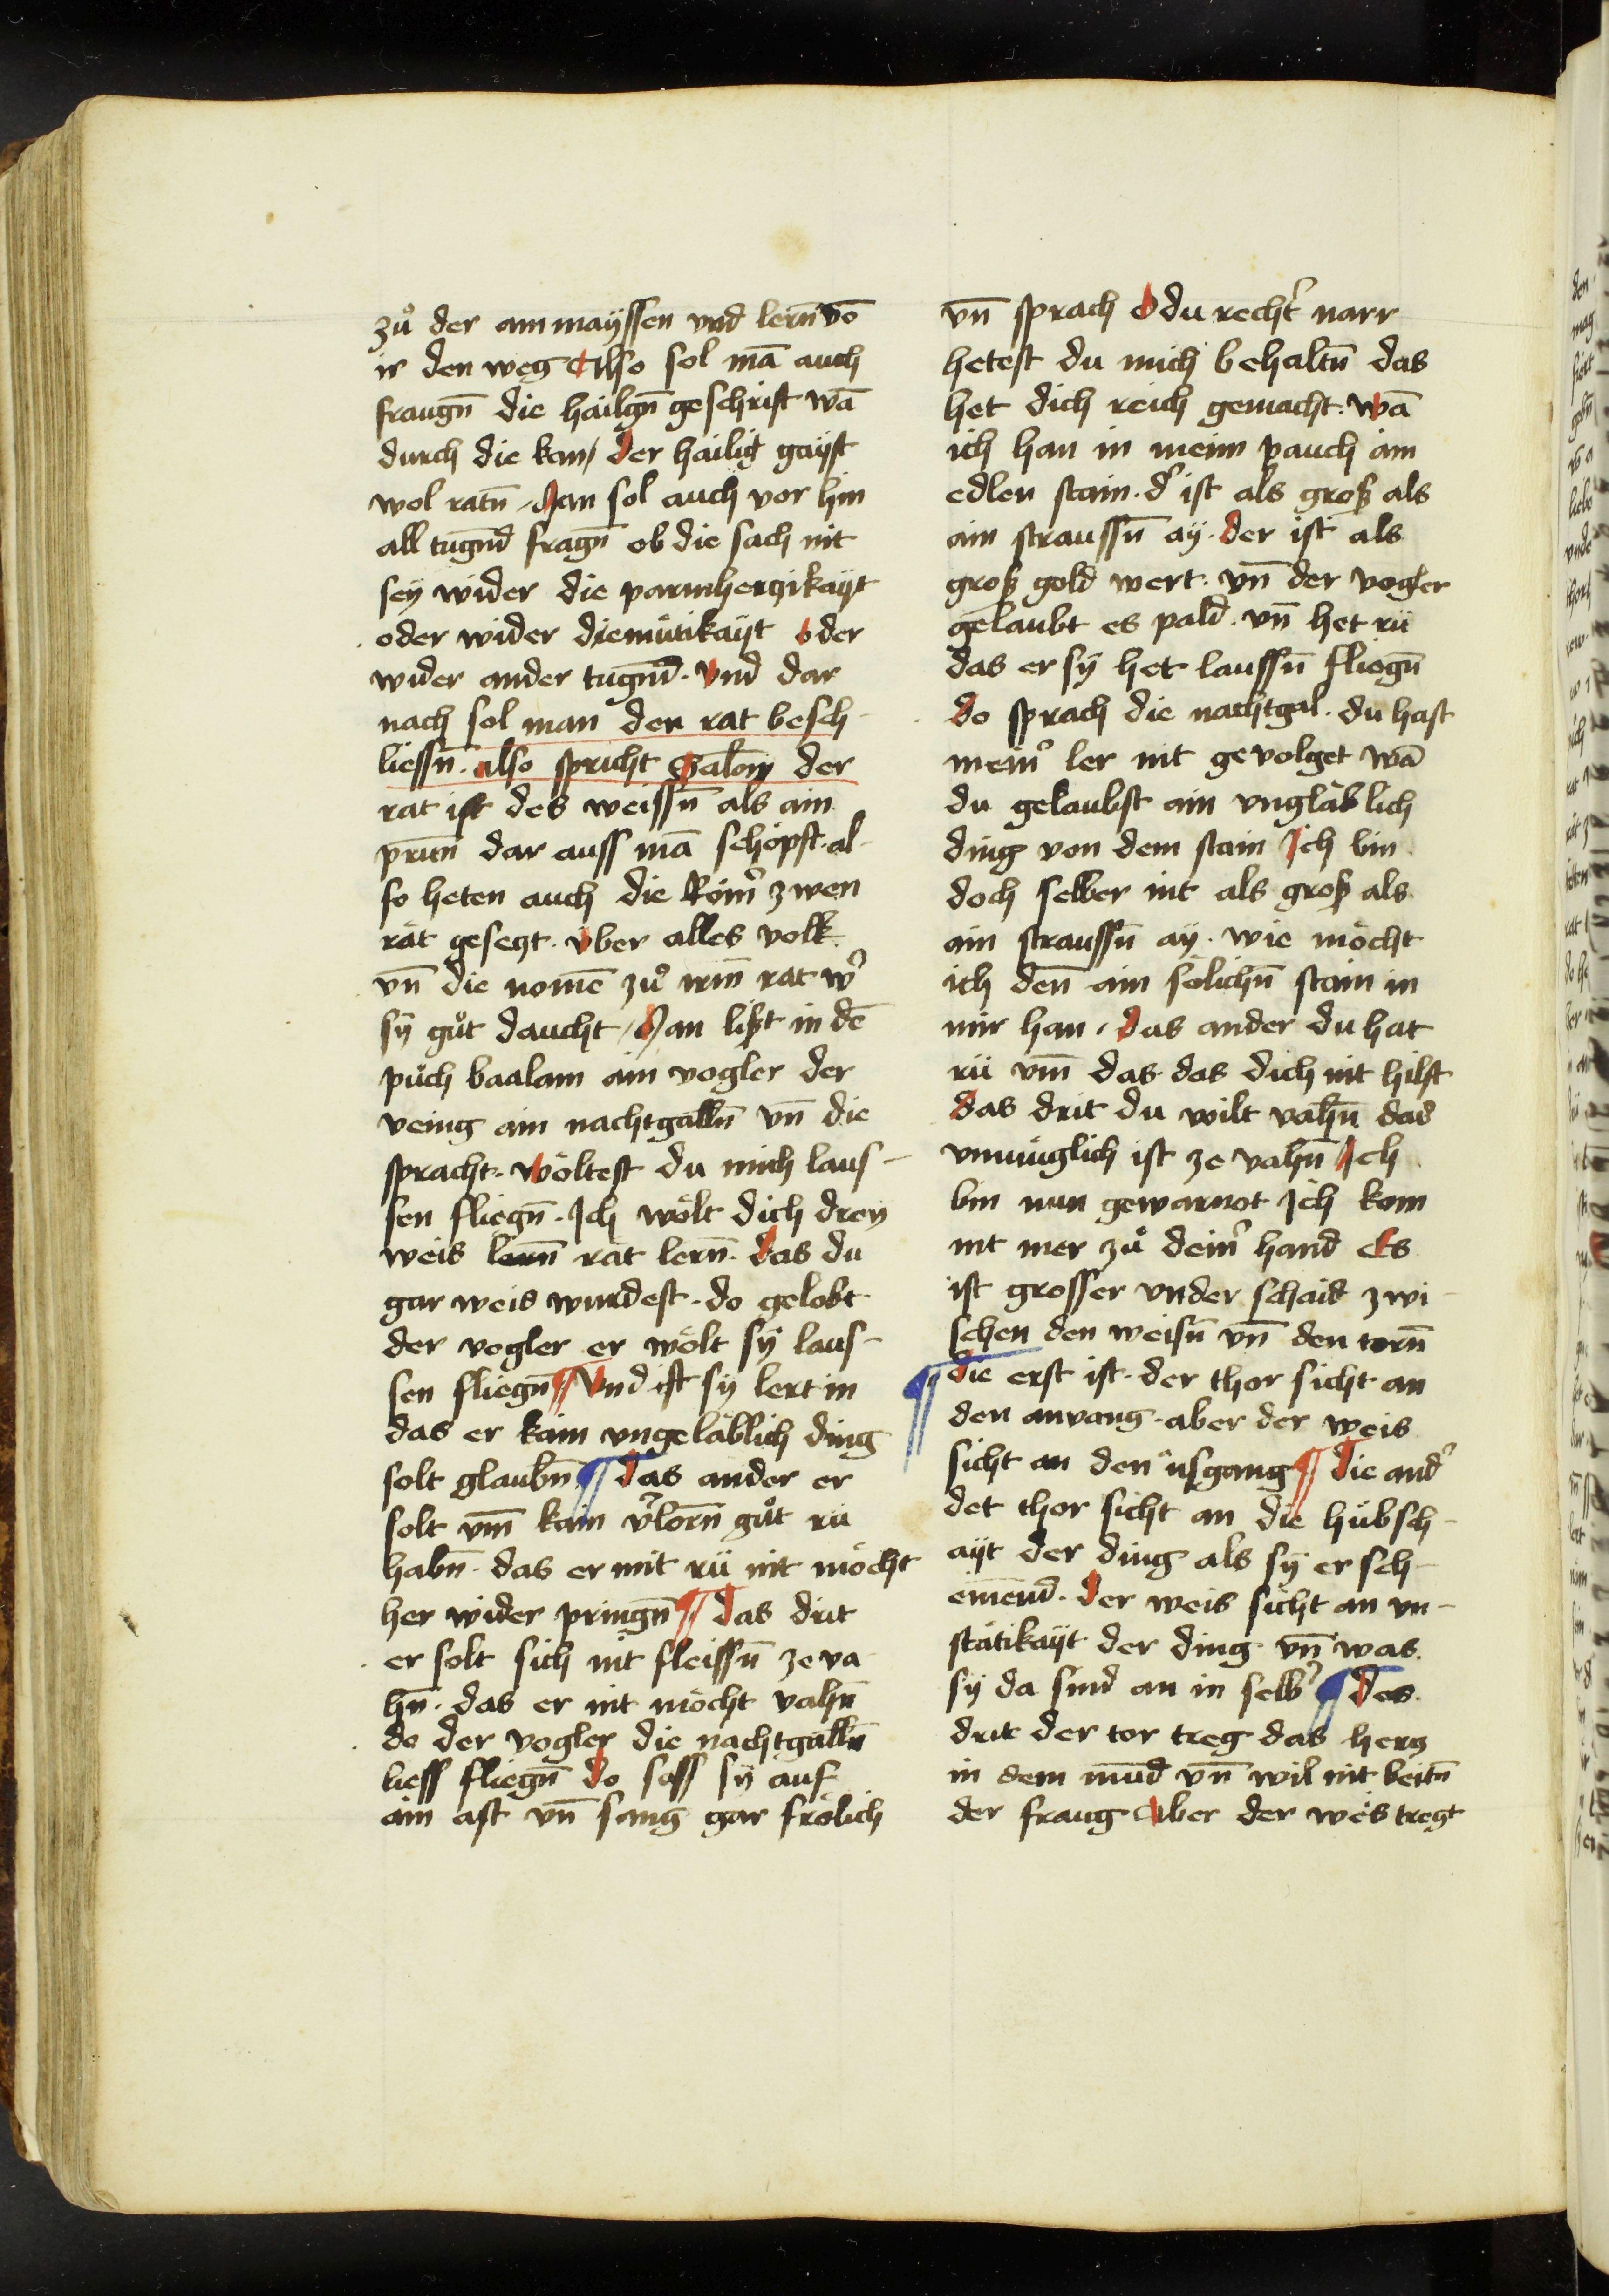 zů der ammayssen vnd lern̄ vō
ir den weg Also sol mā auch
fraugn̄ die hailgn̄ geschrift wā
durch die kan der hailig gayst
wol ratn̄ Man sol auch vor hin
all tugn̄d fragn̄ ob die sach nit
sey wider die parmherczikayt
oder wider diemütikayt oder
wider ander tugn̄d. vnd dar
nach sol man den rat besch-
liessn̄. also spricht Salom der
rat ist des weissn̄ als ain
prun̄ dar auss mā schöpft. al-
so heten auch die Röm̉ zwen
rät geseczt. vber alles volk.
vn̄ die nomē zů irm̄ rat w̉
sy gůt daucht / Man lißt in dē
půch baalam ain vogler der
veing ain nachtgalln̄ vn̄ die
spracht. wöltest du mich laus-
sen fliegn̄. Ich wölt dich drey
weis lernn̄ rät lern̄. das du
gar weis wurdest. do gelobt
der vogler er wölt sy laus-
sen fliegn̄ ¶ Vnd ist sy lert in
das er kain vngeläblich ding
solt glaubn̄ ¶ Das ander er
solt vm̄ kain v̉lorn̄ gůt rü
habn̄. das er mit rü nit möcht
her wider pringn̄ ¶ Das drit
er solt sich nit fleissn̄ ze va
hn̄. das er nit möcht vahn̄
do der vogler die nachtgalln̄
liess fliegn̄ do sass sy auf
ain ast vn̄ sang gar frölich
vn̄ sprach O du recht̉ narr
hetest du mich behaltn̄ das
het dich reich gemacht. wā
ich han in meim pauch ain
edlen stain. d̉ ist als groß als
ain straussn̄ ay. der ist als
groß gold wert. vn̄ der vogler
gelaubt es pald. vn̄ het rü
das er sy het laussn̄ fliegn̄
do sprach die nachtgal. du hast
mein̉ ler nit gevolget wā
du gelaubst ain vngläblich
ding von dem stain Ich bin
doch selber nit als groß als
ain straussn̄ ay. wie möcht
ich den̄ ain sölichn̄ stain in
mir han. das ander du hat
rü vm̄ das. das dich nit hilft
das drit du wilt vahn̄ das
vnmüglich ist ze vahn̄ Ich
bin nun gewarnot Ich kom
nit mer zů dein̉ hand Es
ist grosser vnder schaid zwi-
schen den weisn̄ vn̄ den torn̄
¶ die erst ist. der thor sicht an
den anvang. aber der weis
sicht an den üsgang ¶ Die and̉
det thor sicht an die hübsch-
ayt der ding als sy er sch-
einēnd. der weis sicht an vn-
stätikayt der ding vn̄ was
sy da sind an in selb̉ ¶ Das
drit der tor treg das hercz
in dem mūd vn̄ wil nit beitn̄
der fraug Aber der weis tregt